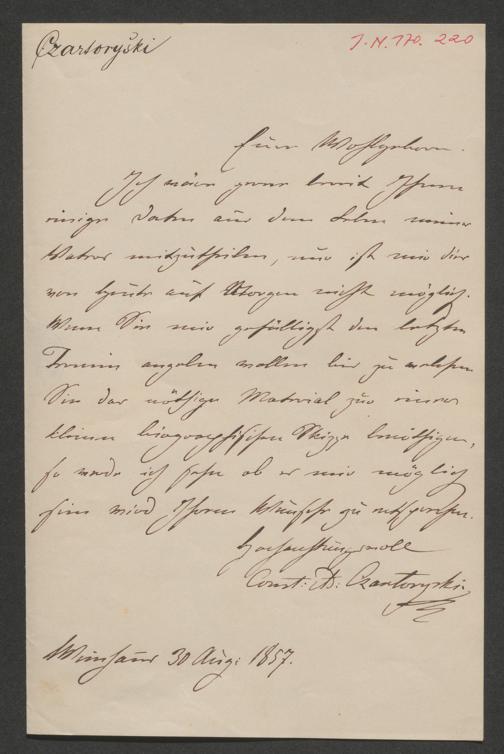 Czartoryski
I.N. 170. 220
Euer Wohlgeboren.
Ich wäre gerne bereit Ihnen
einige Daten aus dem Leben meines
Vaters mitzutheilen, nur ist mir dies
von heute auf Morgen nicht möglich.
Wenn Sie mir gefälligst den letzten
Termin angeben wollen bis zu welchem
Sie das nöthige Material zu einer
kleinen biographischen Skizze benöthigen,
so werde ich sehen ob es mir möglich
sein wird Ihrem Wunsche zu entsprechen.
Hochachtungsvoll
Const: Czartoryski
30 Aug: 1857.